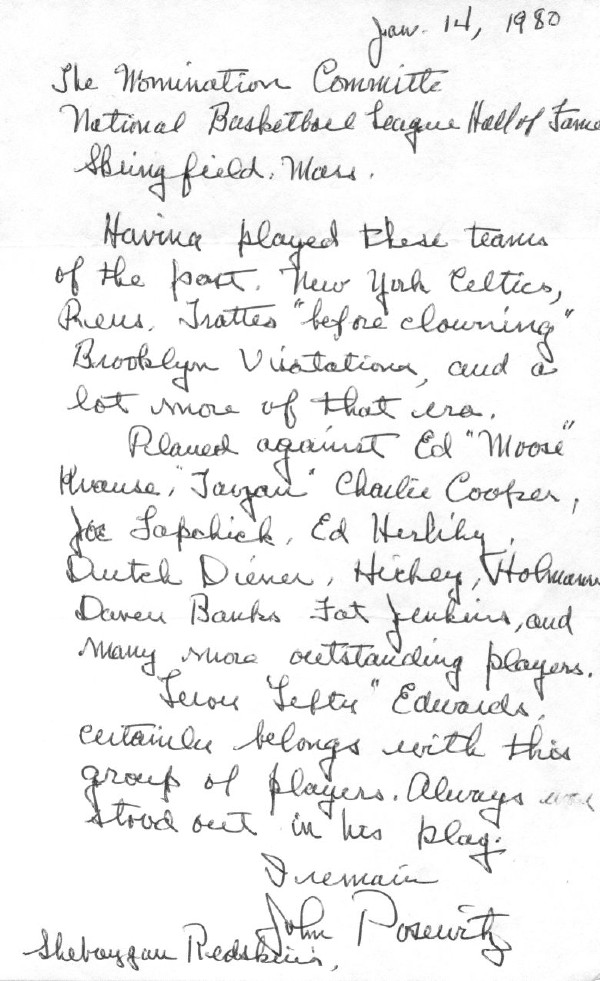 Jan. 14, 1980
The Nomination Committe
National Basketball League Hall of Fame
Springfield, Mass.
Having played these teams
of the past. New York Celtics,
Rens. Trottes "before clowning"
Brooklyn Visatations, and a
lot more of that era.
Played against Ed "Moose"
Krause, "Tarzan" Charlie Cooper,
Joe Lapchick, Ed Herlihy,
Dutch Diener, Hickey, Holmann
Davey Banks Fat Jenkins, and
many more outstanding players.
Leroy "Lefty" Edwards,
certainly belongs with this
group of players. Always
stood out in his play.
I remain
John Posewitz
Sheboygan Redskins,